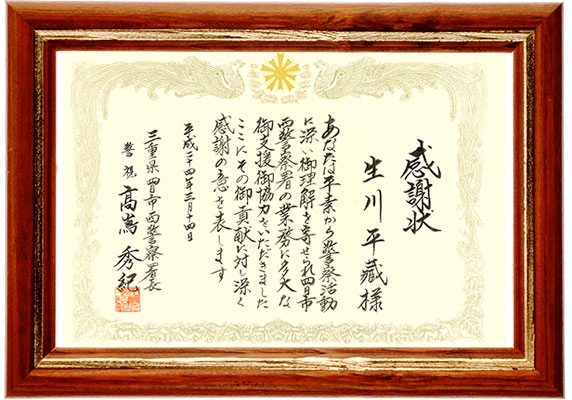 感謝状
生川平藏様
あなたは平素から警察活動
に深い御理解を寄せられ四日市
西警察署の業務に多大な
御支援御協力をいただきました
ここにその御貢献に対し深く
感謝の意を表します
平成二十四年三月十四日
三重県四日市西警察署長
警視 高嶌秀紀